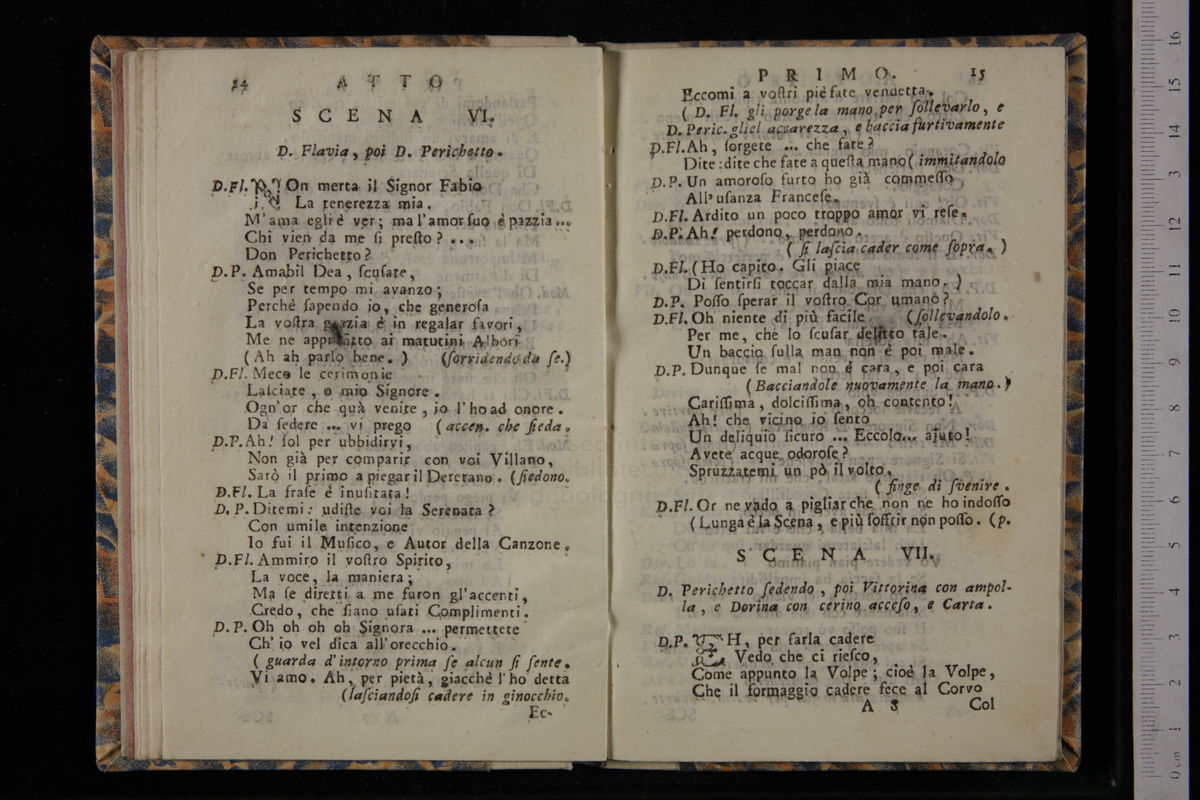 14 ATTO
SCENA VI.
D. Flavia, poi D. Perichetto.
D.Fl. NOn merta il Signor Fabio
La tenerezza mia.
M'ama egli è ver; ma l'amor suo è pazzia ...
Chi vien da me sì presto? ...
Don Perichetto?
D. P. Amabil Dea, scusate,
Se per tempo mi avanzo;
Perchè sapendo io, che generosa
La vostra grazia è in regalar favori,
Me ne approfitto ai matutini Albori
(Ah ah parlo bene.) (sorridendo da se.)
D.Fl. Meco le cerimonie
Lasciate, o mio Signore.
Ogn'or che quà venite, io l'ho ad onore.
Da sedere ... vi prego (accen. che sieda.
D.P. Ah! sol per ubbidirvi,
Non già per comparir con voi Villano,
Sarò il primo a piegar il Deretano. (siedono.
D.Fl. La frase é inusitata!
D. P. Ditemi: udiste voi la Serenata?
Con umile intenzione
Io fui il Musico, e Autor della Canzone.
D.Fl. Ammiro il vostro Spirito,
La voce, la maniera;
Ma se diretti a me furon gl'accenti,
Credo, che siano usati Complimenti.
D. P. Oh oh oh oh Signora ... permettete
Ch'io vel dica all'orecchio.
(guarda d'intorno prima se alcun si sente.
Vi amo. Ah, per pietà, giacchè l'ho detta
(lasciandosi cadere in ginocchio.
Ec-
PRIMO. 15
Eccomi a vostri piè fate vendetta.
(D. Fl. gli porge la mano per sollevarlo, e
D. Peric. gliel accarezza, e baccia furtivamente
D.Fl. Ah, sorgete ... che fate?
Dite: dite che fate a questa mano (immitandolo
D.P. Un amoroso furto ho già commesso
All'usanza Francese.
D.Fl. Ardito un poco troppo amor vi rese.
D.P. Ah! perdono, perdono.
(si lascia cader come sopra.)
D.Fl. (Ho capito. Gli piace
Di sentirsi toccar dalla mia mano.)
D. P. Posso sperar il vostro Cor umano?
D.Fl. Oh niente di più facile (sollevandolo.
Per me, che lo scusar delitto tale.
Un baccio sulla man non è poi male.
D. P. Dunque se mal non é cara, e poi cara
(Bacciandole nuovamente la mano.)
Carissima, dolcissima, oh contento!
Ah! che vicino io sento
Un deliquio sicuro ... Eccolo... ajuto!
Avete acque odorose?
Spruzzatemi un pò il volto.
(finge di svenire.
D.Fl. Or ne vado a pigliar che non ne ho indosso
(Lunga è la Scena, e più soffrir non posso. (p.
SCENA VII.
D. Perichetto sedendo, poi Vittorina con ampol-
la, e Dorina con cerino acceso, e Carta.
D.P. UH, per farla cadere
Vedo che ci riesco,
Come appunto la Volpe; cioè la Volpe,
Che il formaggio cadere fece al Corvo
A 8 Col